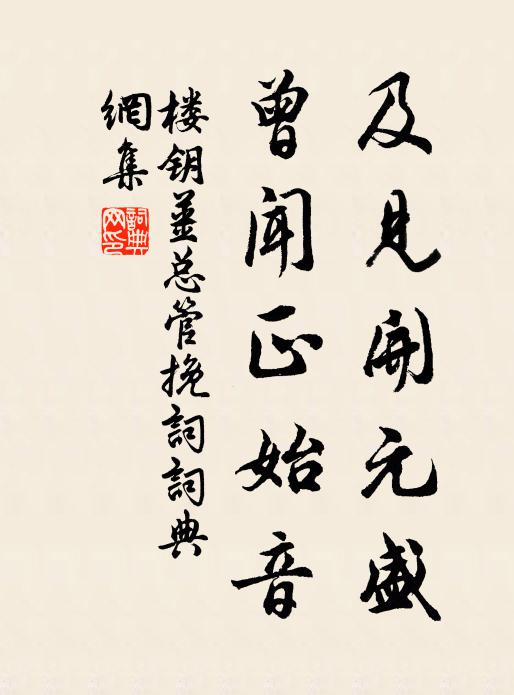 及見開元盛
曾聞正始音
楼钥姜总管挽詞詞典
網集
詞典
网印